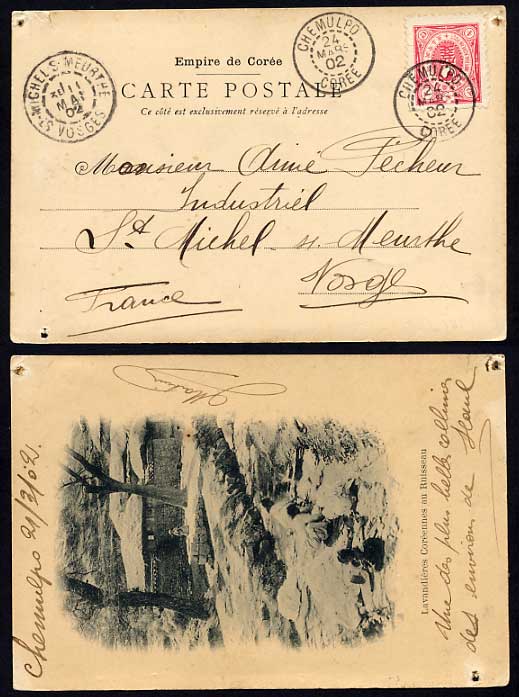 CHEMULPO
24
MARS
02
CORÉE
CHEMULPO
24
MARS
02
CORÉE
ST MICHEL-S-MEURTHE
11
MAI
02
VOSGES
Empire de Corée
CARTE POSTALE
Ce côté est exclusivement réservé à l'adresse
Monsieur Aimé Pécheur
Industriel
St Michel s. Meurthe
Vosges
France
Lavandières Coréennes au Ruisseau
Une des plus belles collines
des environs de
Chemulpo 21/3/02.